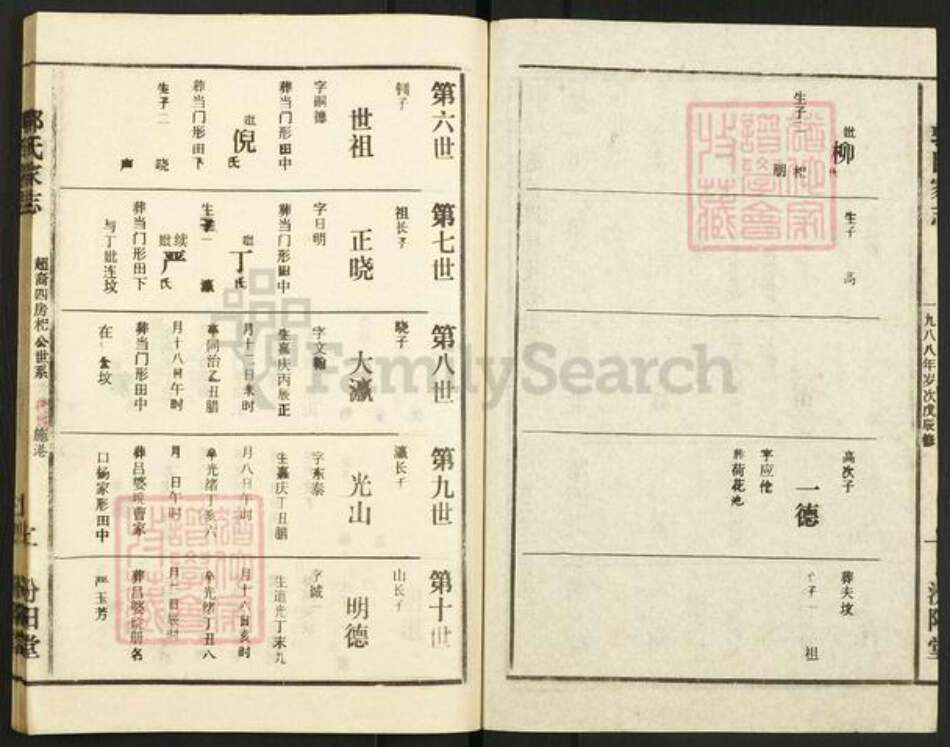 生子二
妣
柳
氏
杞
朋
生子
高
高次子
一德
字应伦
葬荷花池
葬夫坟
生子一
祖
一九八八年岁次戊辰修
第六世
钊子
世祖
字嗣德
葬当门形田中
妣
倪
氏
葬当门形田下
生子二
晓
声
第七世
祖长子
正晓
字日明
葬当门形田中
妣
丁
氏
生子一
瀛
续妣
严
氏
葬当门形田下
与丁妣连坟
第八世
晓子
大瀛
字文翰
生嘉庆丙辰正
月十二日未时
卒同治乙丑腊
月十八日午时
葬当门形田中
在公坟
第九世
瀛长子
光山
字东泰
生嘉庆丁丑腊
月八日午时
卒光绪丁亥六
月 日午时
葬吕婆垸曹家
口杨家形田中
第十世
山长子
明德
字诚一
生道光丁未九
月十六日亥时
卒光绪丁丑八
月一日辰时
葬吕婆垸朋名
严玉芳
郭氏家志
超裔四房杞公世系
施港
汾阳堂
FamilySearch